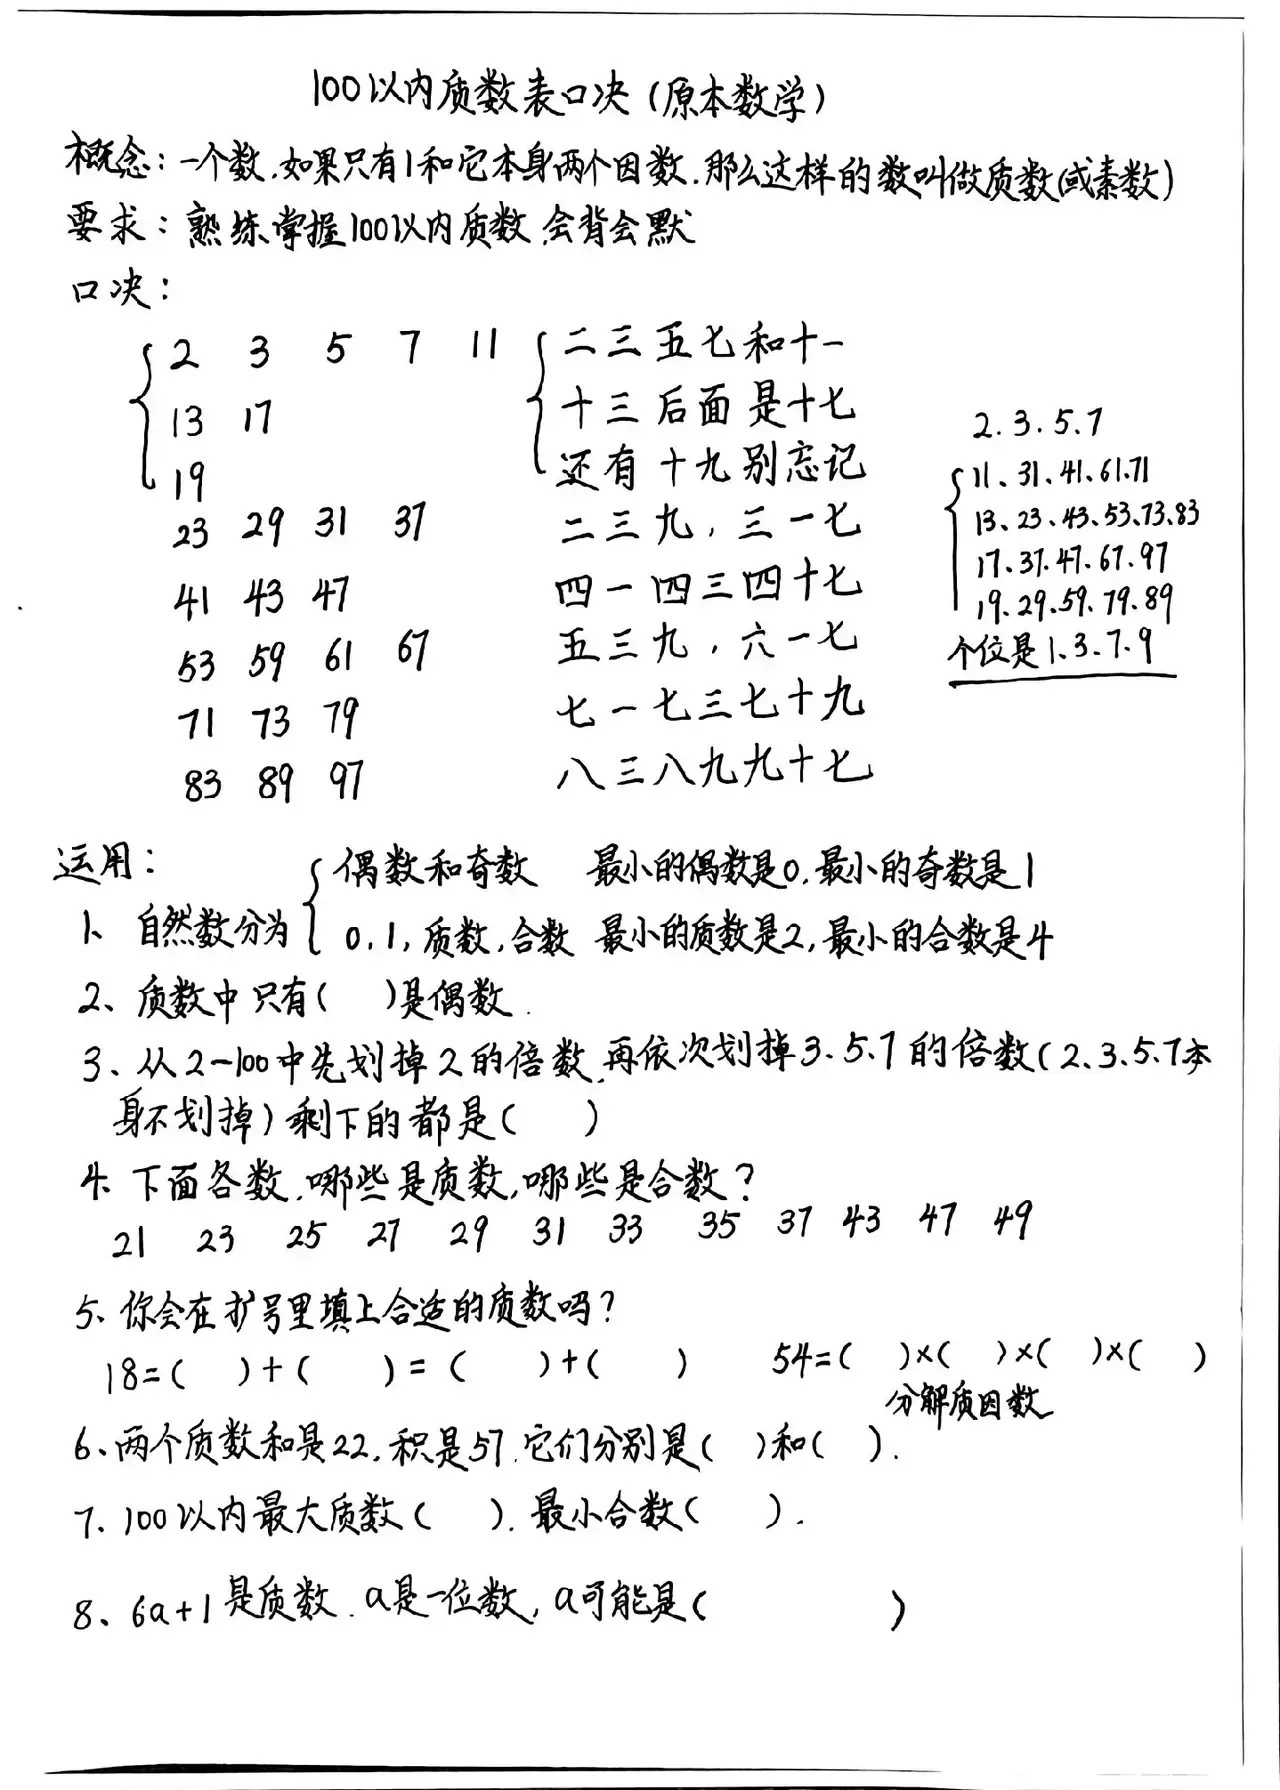 100以内质数表口决（原本数学）
概念：一个数，如果只有1和它本身两个因数，那么这样的数叫做质数（或素数）
要求：熟练掌握100以内质数，会背会默
口决：
2 3 5 7 11
13 17
19
23 29 31 37
41 43 47
53 59 61 67
71 73 79
83 89 97
二三五七和十一
十三后面是十七
还有十九别忘记
二三九，三一七
四一四三四十七
五三九，六一七
七一七三七十九
八三八九九十七
2.3.5.7
11、31、41、61、71
13、23、43、53、73、83
17、37、47、67、97
19、29、59、79、89
个位是1、3、7、9
运用：
1、自然数分为
偶数和奇数 最小的偶数是0，最小的奇数是1
0，1，质数，合数 最小的质数是2，最小的合数是4
2、质数中只有（ ）是偶数．
3、从2-100中先划掉2的倍数，再依次划掉3.5.7的倍数（2.3.5.7本
身不划掉）剩下的都是（ ）
4、下面各数，哪些是质数，哪些是合数？
21 23 25 27 29 31 33 35 37 43 47 49
5、你会在扩号里填上合适的质数吗？
18=( )+( )=( )+( ) 54=( )×( )×( )×( )
分解质因数
6、两个质数和是22，积是57，它们分别是（ ）和（ ）．
7、100以内最大质数（ ）．最小合数（ ）．
8、6a+1是质数．a是一位数，a可能是（ ）